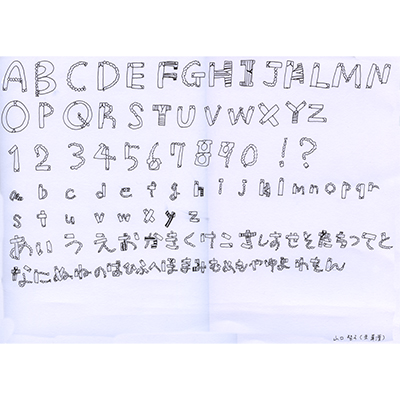 ABCDEFGHIJKLMN
OPQRSTUVWXYZ
1234567890!?
abcdefghijklmnopqr
stuvwxyz
あいうえおかきくけこさしすせそたちつてと
なにぬねのはひふへほまみむめもやゆよわをん